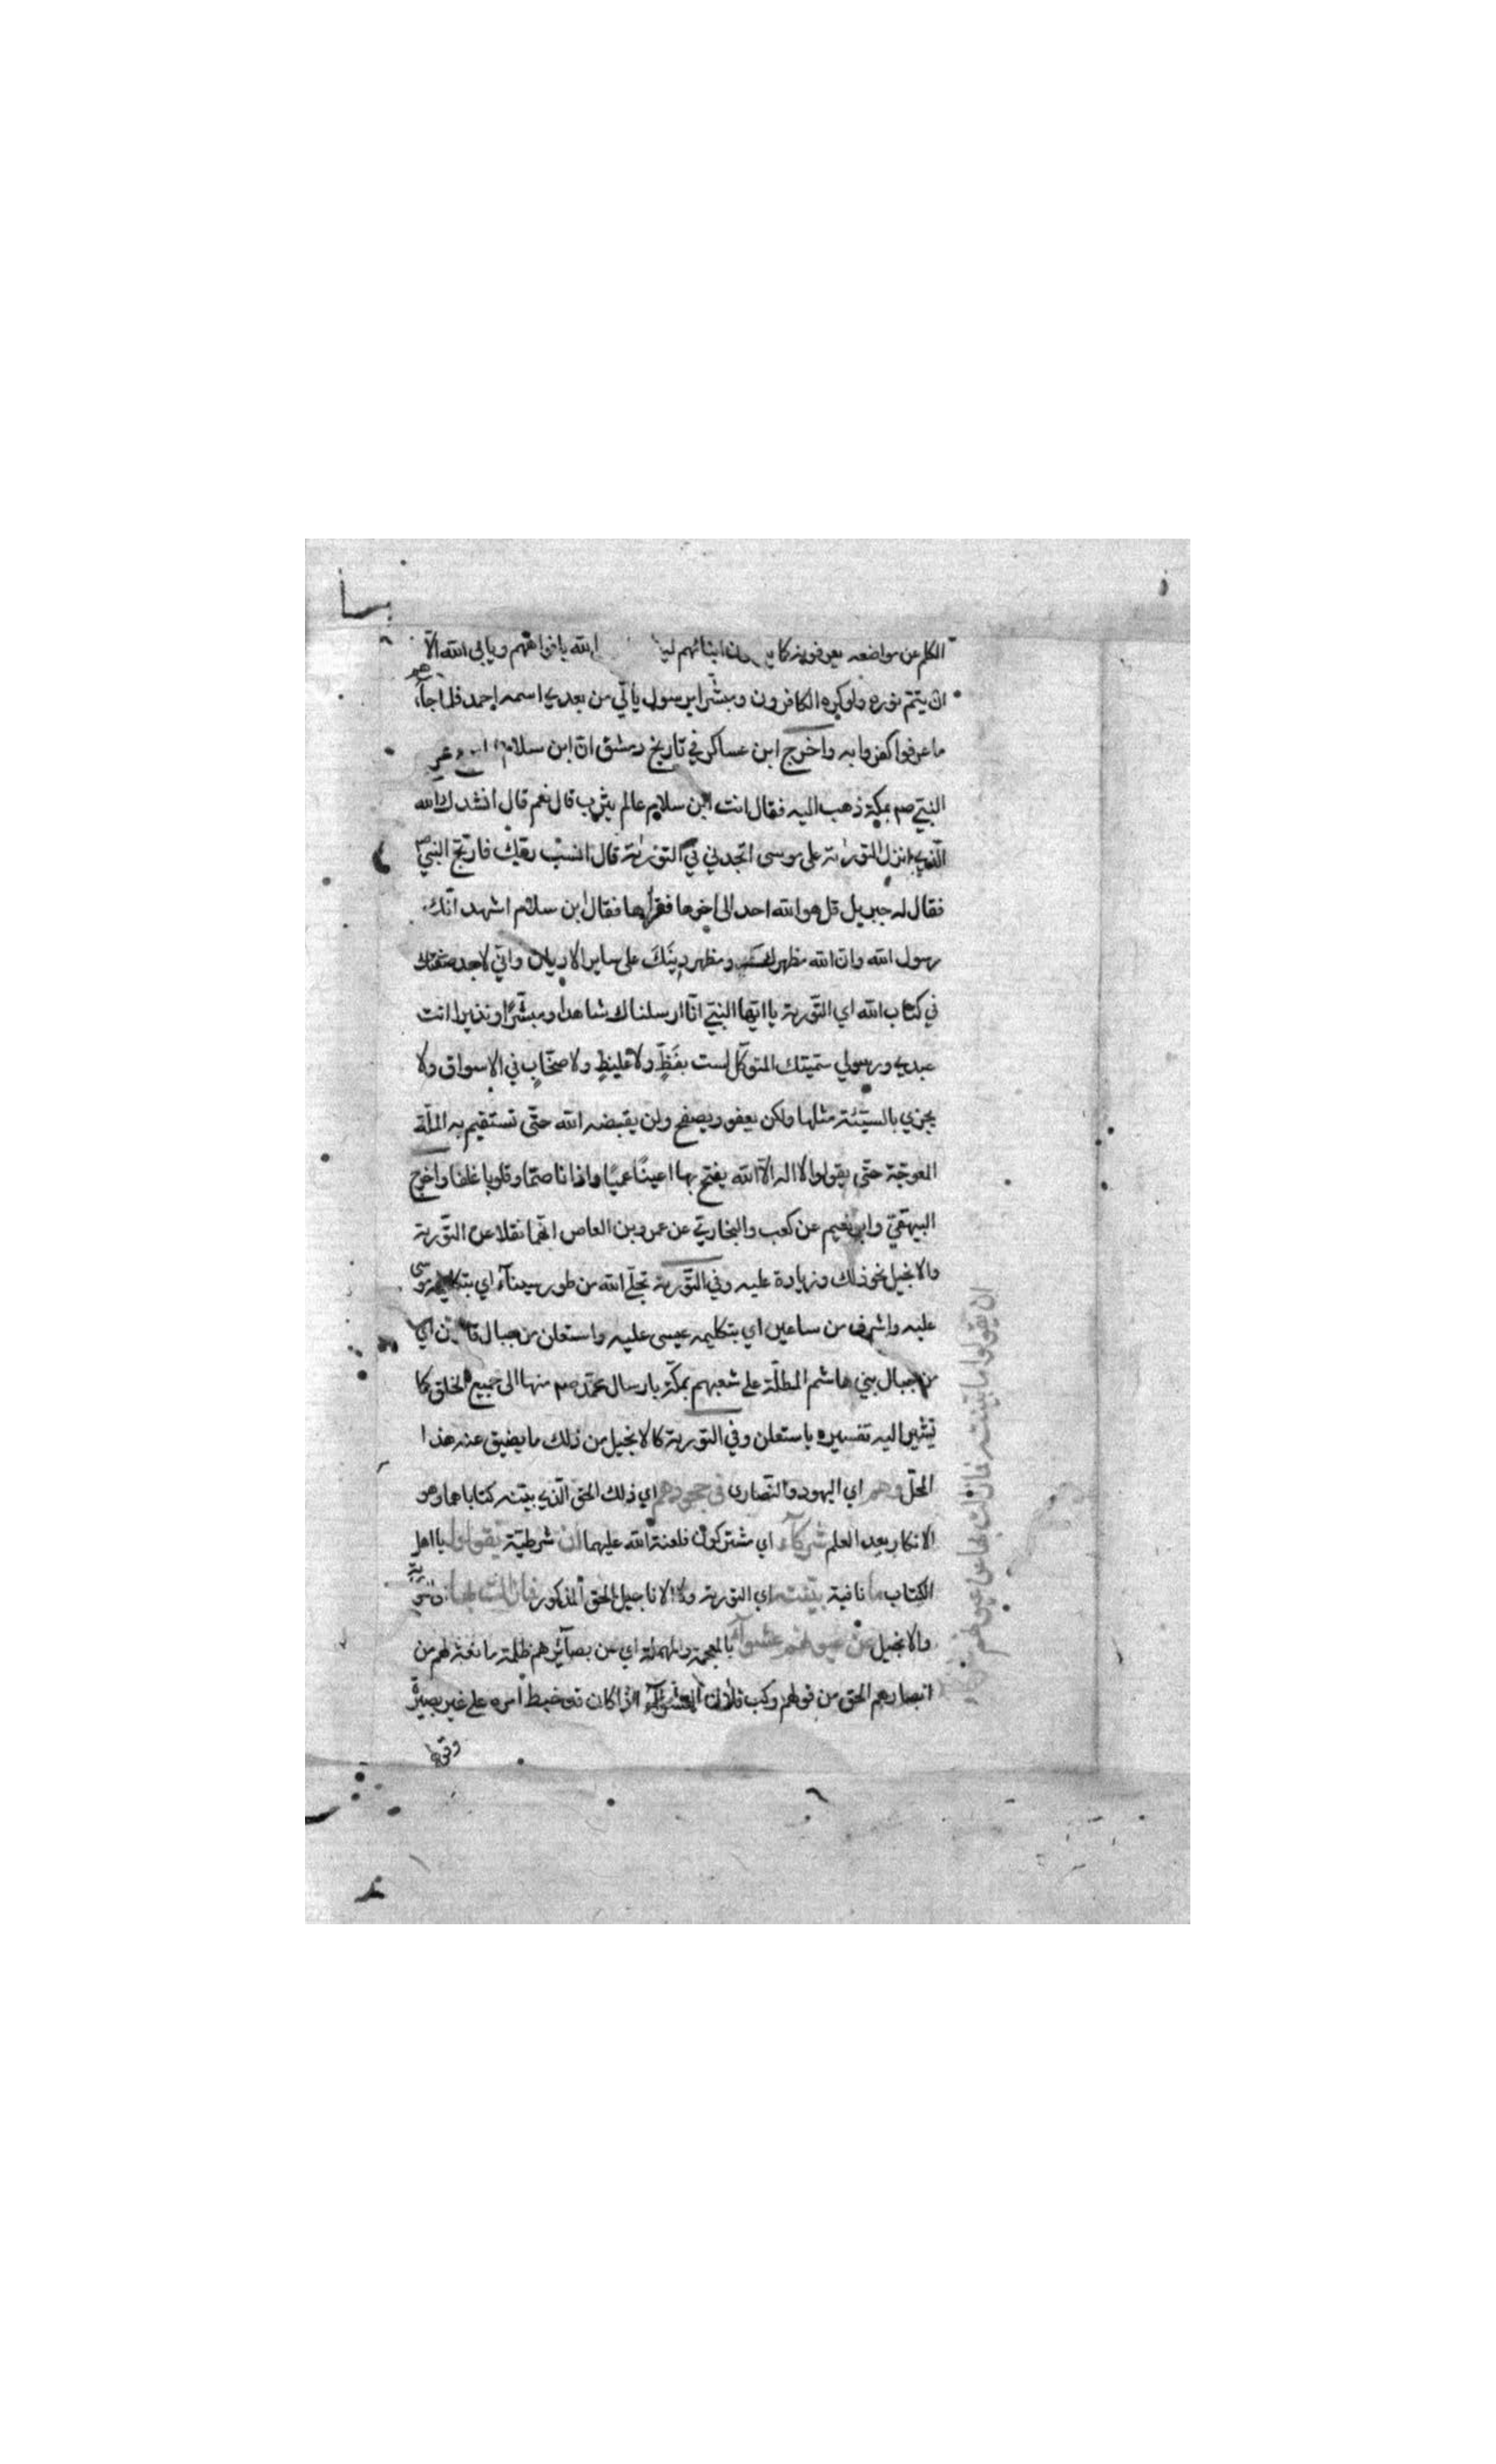 الكلم عن مواضعه يعرفونه كما ابنائهم الله بافواههم ويابى الله الّا
ان يتمّ نوره ولو كره الكافرون ومبشّرا برسول ياتي من بعدي اسمه احمد فلما جاءهم
ما عرفوا كفروا به واخرج ابن عساكر في تاريخ دمشق انّ ابن سلام
النبيّ صم بمكة ذهب اليه فقال انت ابن سلام عالم يثرب قال نعم قال انشدك الله
الّذي انزل التوراية على موسى اتجدني في التوراية قال انسب ربّك فارتجّ النبيّ
فقال له جبريل قل هو الله احد الى اخرها فقراها فقال ابن سلام اشهد انّك
رسول الله وان الله مظهرك ومظهر دينك على ساير الاديان واني لاجد صفتك
في كتاب الله اي التّورية يا ايّها النبيّ انّا ارسلناك شاهدا ومبشّرًا ونذيرا انت
عبدي ورسولي سمّيتك المتوكّل لست بفظٍّ ولا غليظٍ ولا صخّابٍ في الاسواق ولا
يجزي بالسيّئة مثلها ولكن يعفو ويصفح ولن يقبضه الله حتّى تستقيم به الملّة
المعوجّة حتّى يقولوا لا اله الّا الله يفتح بها اعينًا عميًا واذانا صمّا وقلوبا غلفا واخرج
البيهقيّ وابو نعيم عن كعب والبخاريّ عن عمرو بن العاص انّهما نقلا عن التّورية
والانجيل نحو ذلك وزيادة عليه وفي التّورية تجلّى الله من طور سيناء اي بتكليمه موسى
عليه واشرف من ساعين اي بتكليمه عيسى عليه واستعلن من جبال اي
من جبال بني هاشم المطلّة على شعبهم بمكّة بارسال محمّد صم منها الى جميع الخلق كما
تشير اليه تفسيره باستعلن وفي التورية كالانجيل من ذلك ما يضيق عنه هذا
المحلّ وهم اي اليهود والنّصارى في جحودهم اي ذلك الحق الّذي بيّنته كتاباها وهو
الانكار بعد العلم شركآء اي مشتركون فلعنة الله عليهما ان شرطيّة تقولوا يا اهل
الكتاب ما نافية بيّنته اي التورية ولا الاناجيل الحق المذكور فما زالت بها
والانجيل عن عيونهم عشوآء بالمعجمة والمهملة اي عن بصآئرهم ظلمة مانعة لهم من
ابصارهم الحق من قولهم ركب فلان العشوآء اذا كان قد خبط امره على غير بصيرة
وقى
ان يقولوا ما بيّنته فما زالت بها عن عيونهم